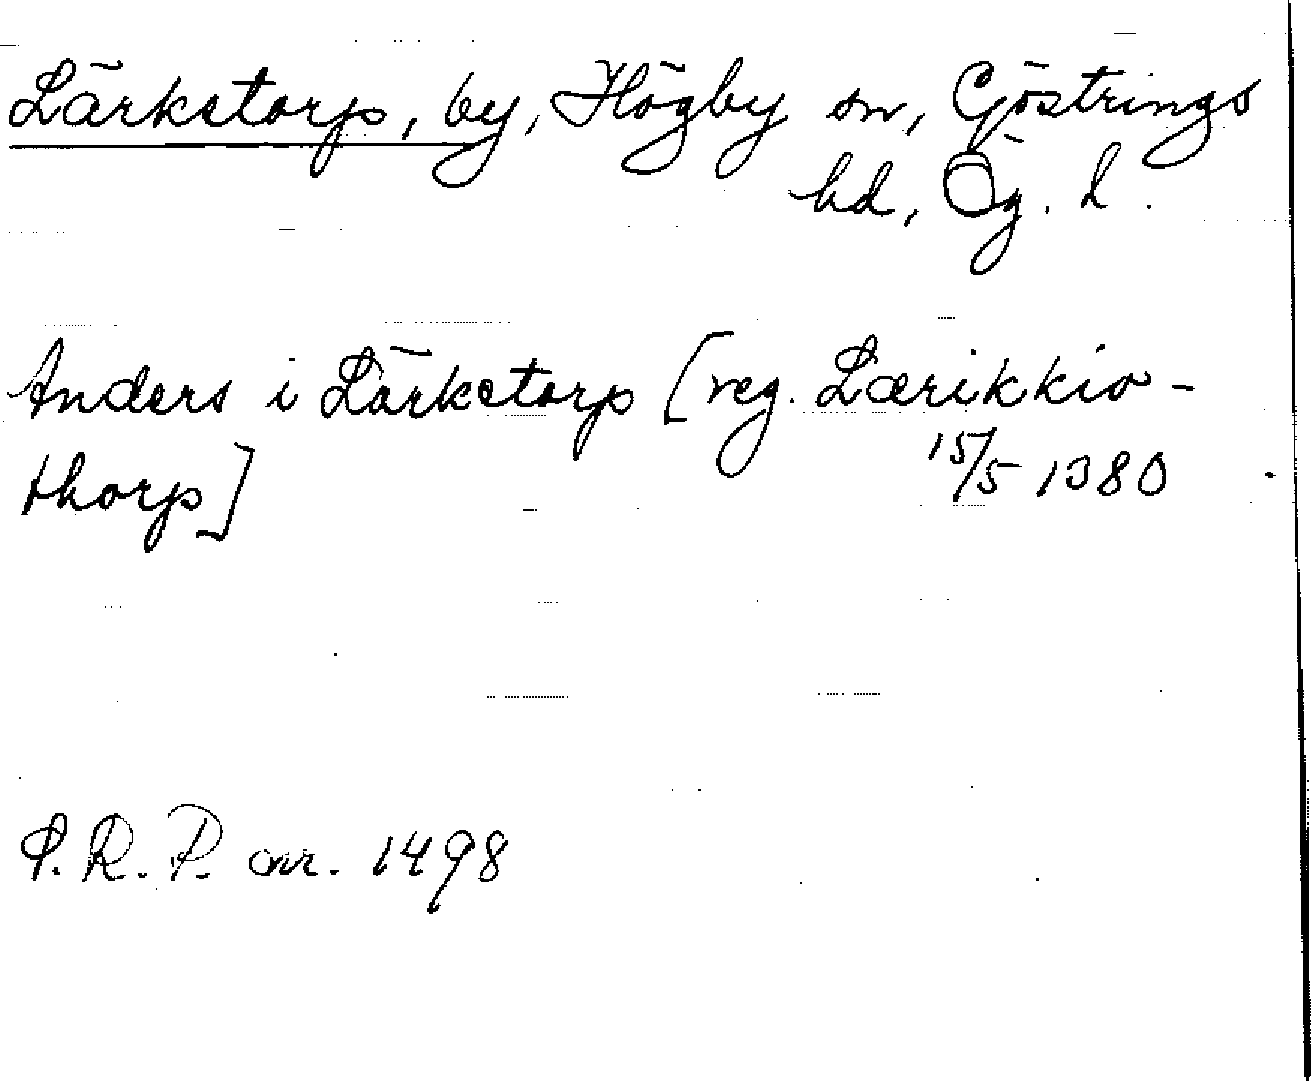 Lärkstorp, by, Högby sn, Göstrings
hd, Ög. l.
Anders i Lärkstorp [reg. Lærikkio-
thorp] 15/5 1380
P.R.P. nr. 1498